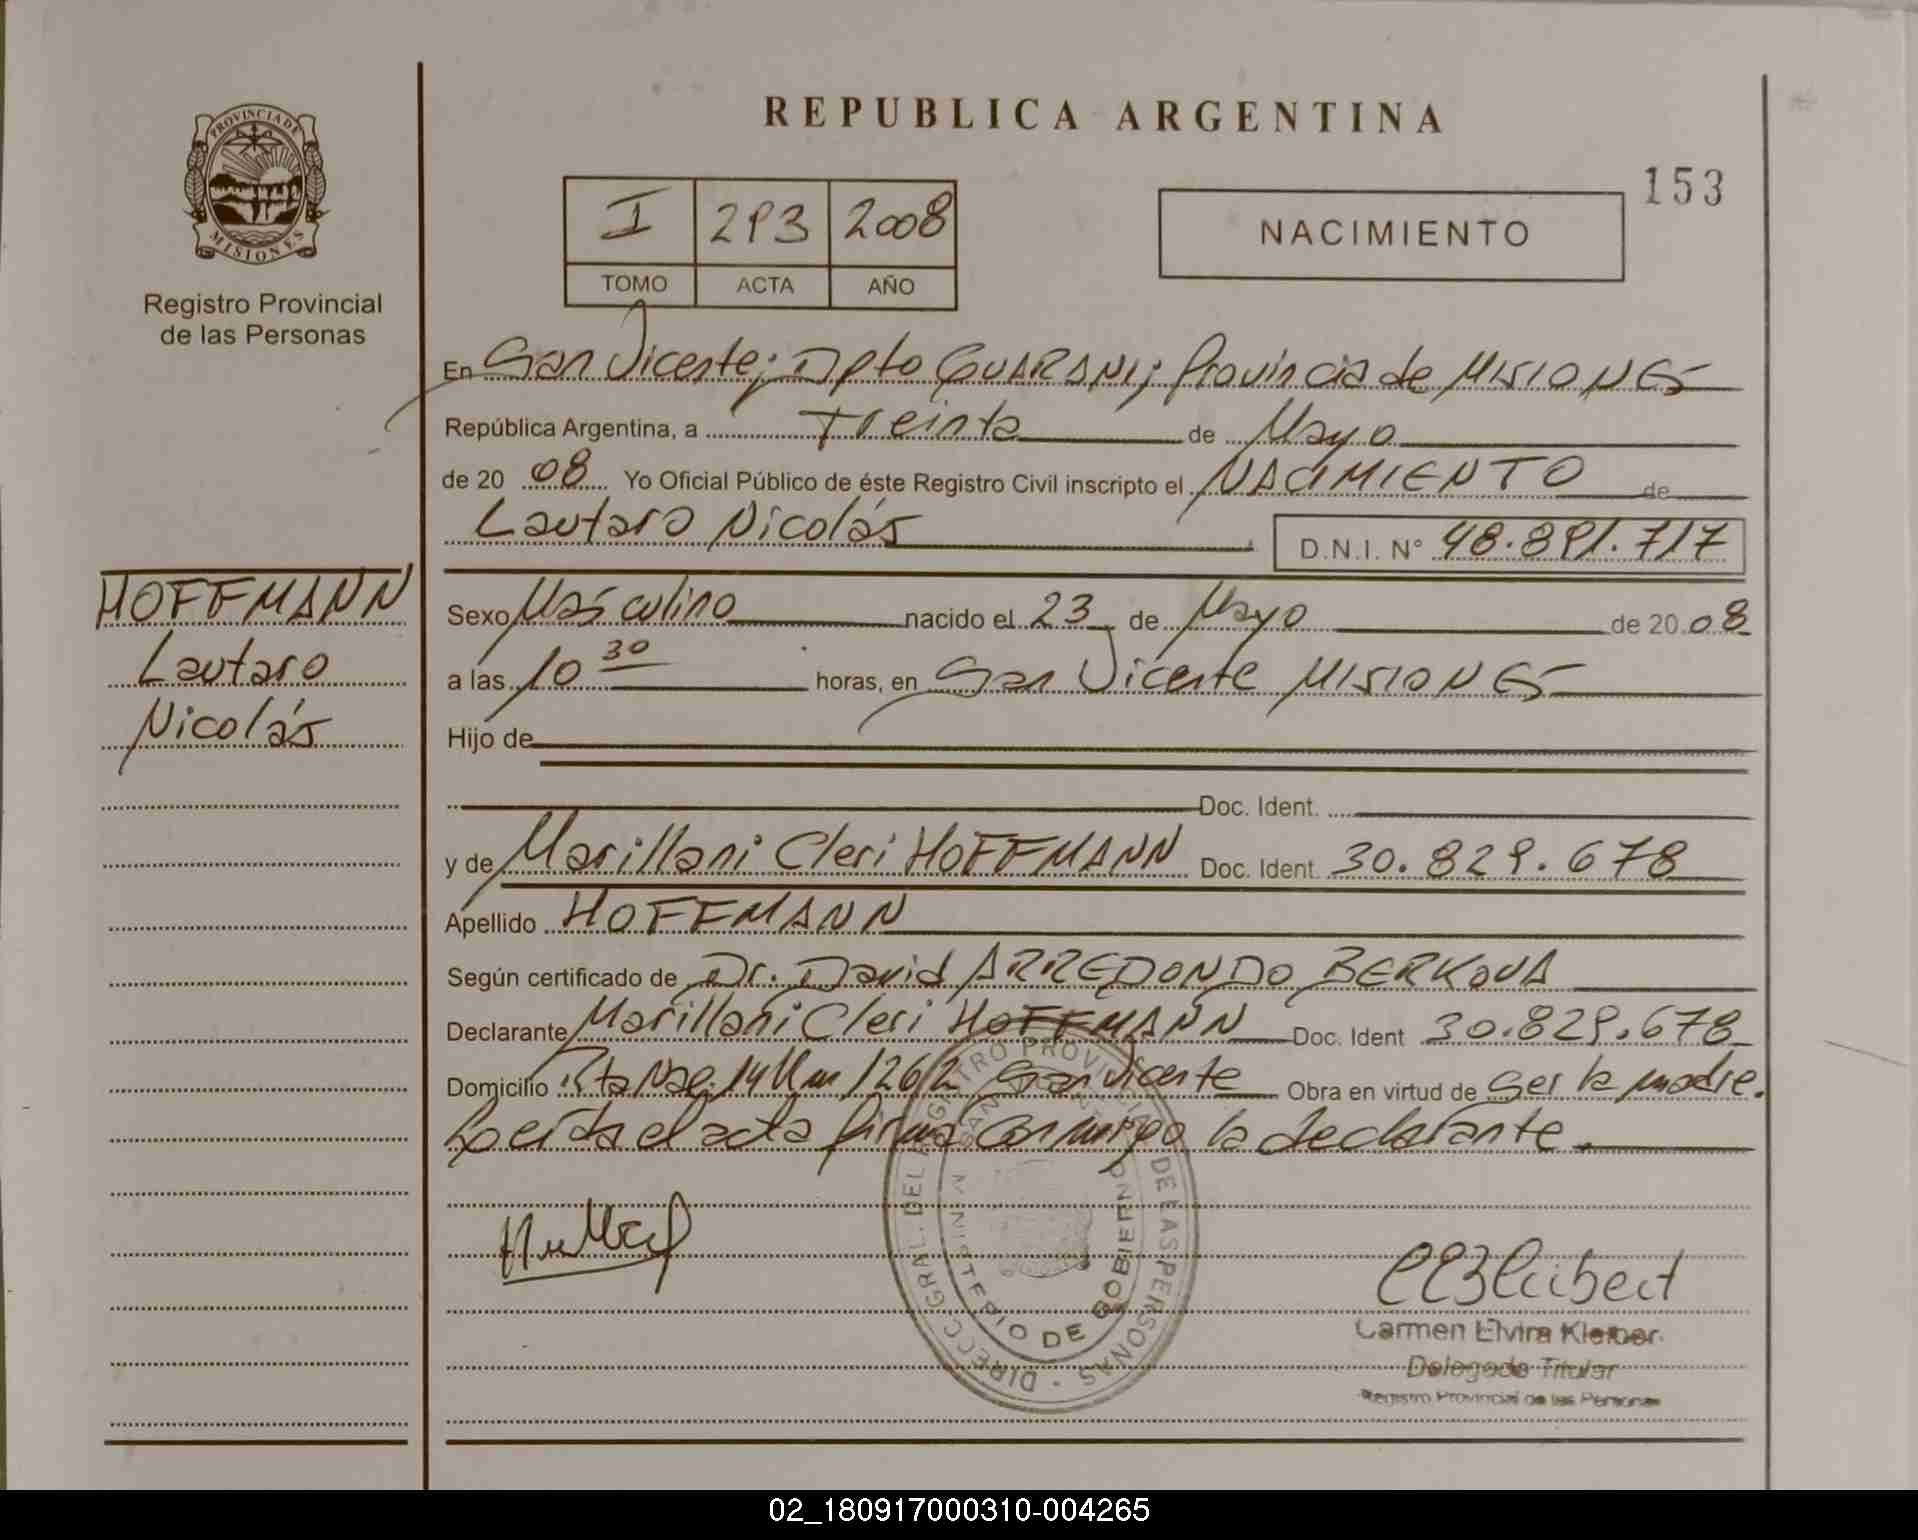 REPUBLICA ARGENTINA
PROVINCIA DE
MISIONES
Registro Provincial
de las Personas
I 293 2008
TOMO ACTA AÑO
NACIMIENTO
153
En San Vicente; Dpto GUARANI; Provincia de MISIONES
República Argentina, a Treinta de Mayo
de 20 08 Yo Oficial Público de éste Registro Civil inscripto el NACIMIENTO de
Lautaro Nicolás D.N.I. N° 48.891.717
HOFFMANN
Lautaro
Nicolás
Sexo Masculino nacido el 23 de Mayo de 20 08
a las 10 30 horas, en San Vicente MISIONES
Hijo de
Doc. Ident.
y de Marillani Cleri HOFFMANN Doc. Ident. 30.829.678
Apellido HOFFMANN
Según certificado de Dr. David ARREDONDO BERKOVA
Declarante Marillani Cleri HOFFMANN Doc. Ident 30.829.678
Domicilio Rta Nac. 14 Km 1262 San Vicente Obra en virtud de ser la madre.
Leída el acta firma conmigo la declarante.
DIRECC. GRAL. DEL REGISTRO PROVINCIAL DE LAS PERSONAS
MINISTERIO DE GOBIERNO
Carmen Elvira Kleiber
Delegado Titular
Registro Provincial de las Personas
02_180917000310-004265